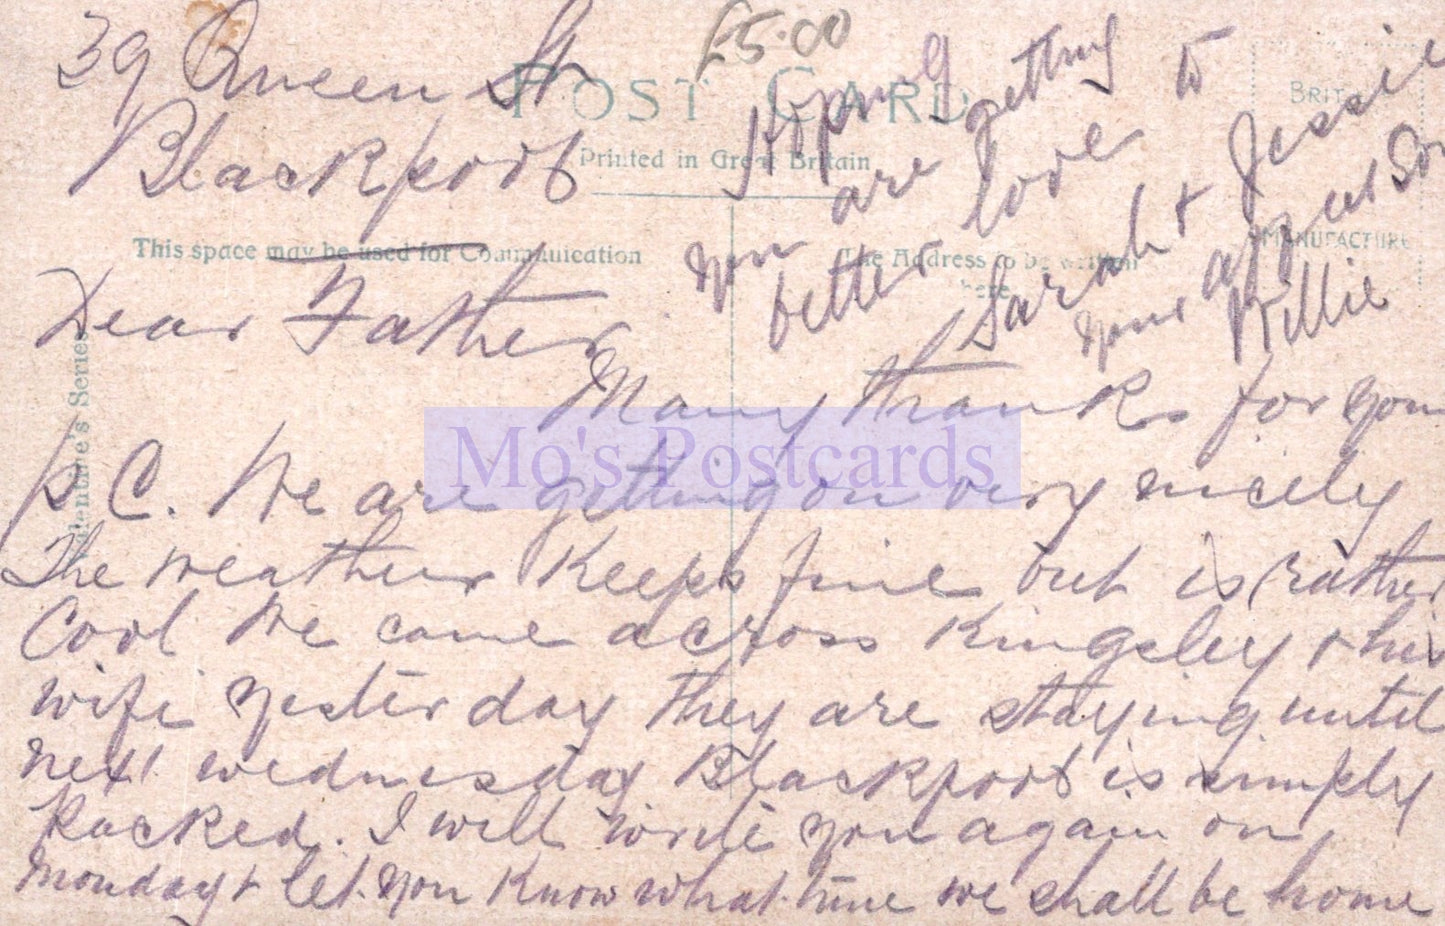 39 Queen St
Blackpool
£5.00
POST CARD
Printed in Great Britain
This space may be used for Communication
The Address to be written
here
BRIT
MANUFACTURE
Valentine's Series
Dear Father
Many thanks for your
p.C. We are getting on very nicely
The weather Keeps fine but is rather
Cool We came across Kingsley & his
wife yesterday they are staying until
next wednesday Blackpool is simply
Packed. I will write you again on
Monday & let you Know what time we shall be home
Hoping
you are getting
better love to
Sarah & Jessie
Your affect Son
Willie
Mo's Postcards